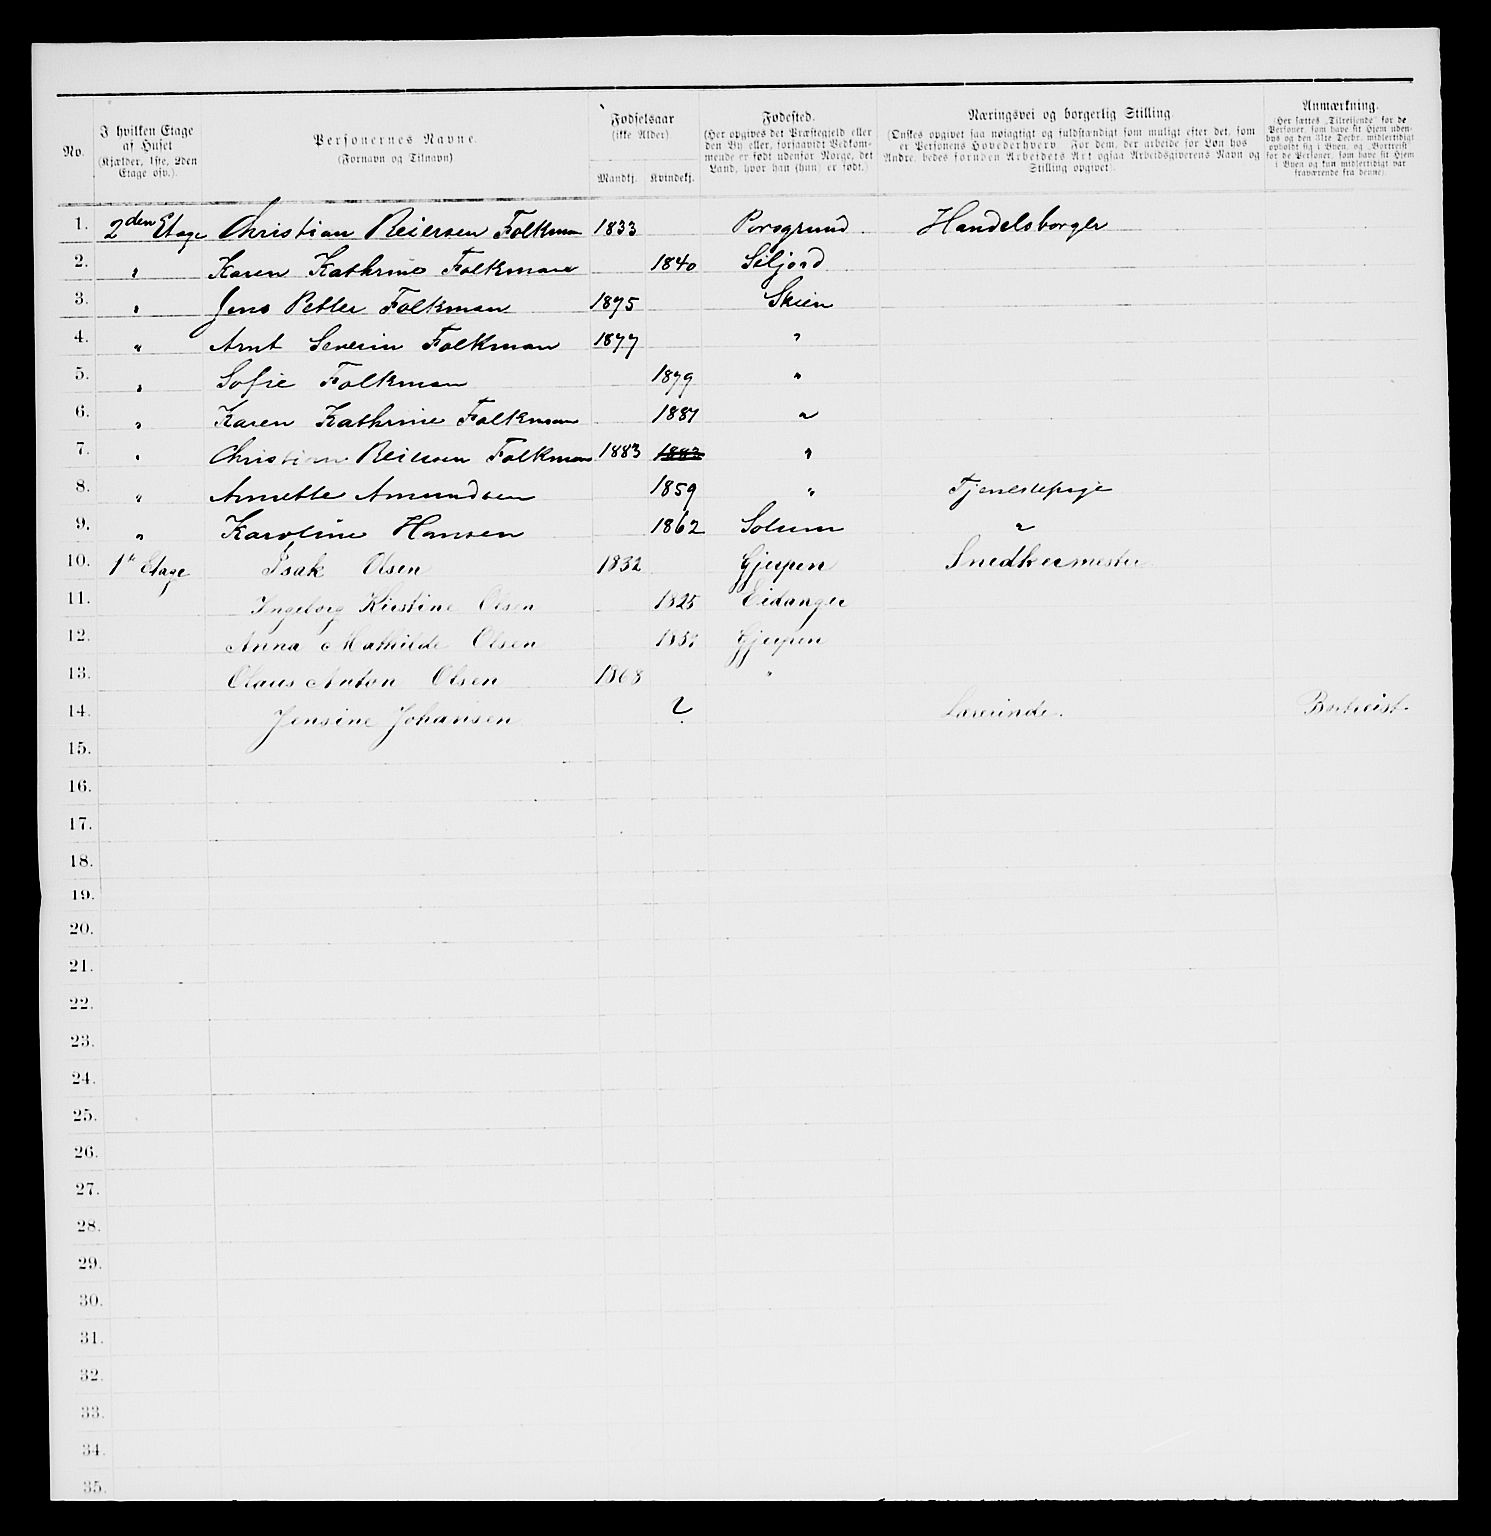 No.
I hvilken Etage af Huset (Kjælder, 1ste, 2den Etage osv.).
Personernes Navne. (Fornavn og Tilnavn)
Fødselsaar (ikke Alder)
Mandkj. Kvindekj.
Fødested. (Her opgives det Præstegjeld eller den By eller, forsaavidt Vedkommende er født udenfor Norge, det Land, hvor han (hun) er født.)
Næringsvei og borgerlig Stilling (Ønskes opgivet saa nøiagtigt og fuldstændigt som muligt efter det, som er Personens Hovederhverv For dem, der arbeide for Løn hos Andre, bedes foruden Arbeidets Art ogsaa Arbeidsgiverens Navn og Stilling opgivet).
Anmærkning. (Her sættes „Tilreisende“ for de Personer, som have sit Hjem udenbys og den 31te Decbr. midlertidigt opholdt sig i Byen, og „Bortreist“ for de Personer, som have sit Hjem i Byen og kun midlertidigt var fraværende fra denne).
1. 2den Etage Christian Reiersen Folkman 1833 Porsgrund Handelsborger
2. " Karen Kathrine Folkman 1840 Siljord
3. " Jens Petter Folkman 1875 Skien
4. " Arnt Severin Folkman 1877 "
5. " Sofie Folkman 1879 "
6. " Karen Kathrine Folkman 1881 "
7. " Christian Reiersen Folkman 1883 1883 "
8. " Annette Amundsen 1859 " Tjenestepige
9. " Karoline Hansen 1862 Solum "
10. 1ste Etage Isak Olsen 1832 Gjerpen Snedkermester
11. Ingeborg Kirstine Olsen 1825 Eidanger
12. Anna Mathilde Olsen Gjerpen
13. Olaus Anton Olsen 1868 "
14. Jensine Johansen ? Lærerinde. Bortreist.
15.
16.
17.
18.
19.
20.
21.
22.
23.
24.
25.
26.
27.
28.
29.
30.
31.
32.
33.
34.
35.